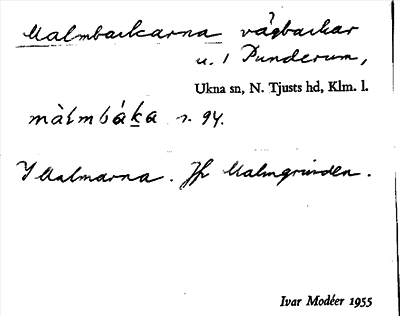 Malmbackarna vägbackar
u. 1 Punderum,
Ukna sn, N. Tjusts hd, Klm. l.
màlmbák̲a s. 94.
Malmarna. Jfr Malmgrinden.
Ivar Modéer 1955